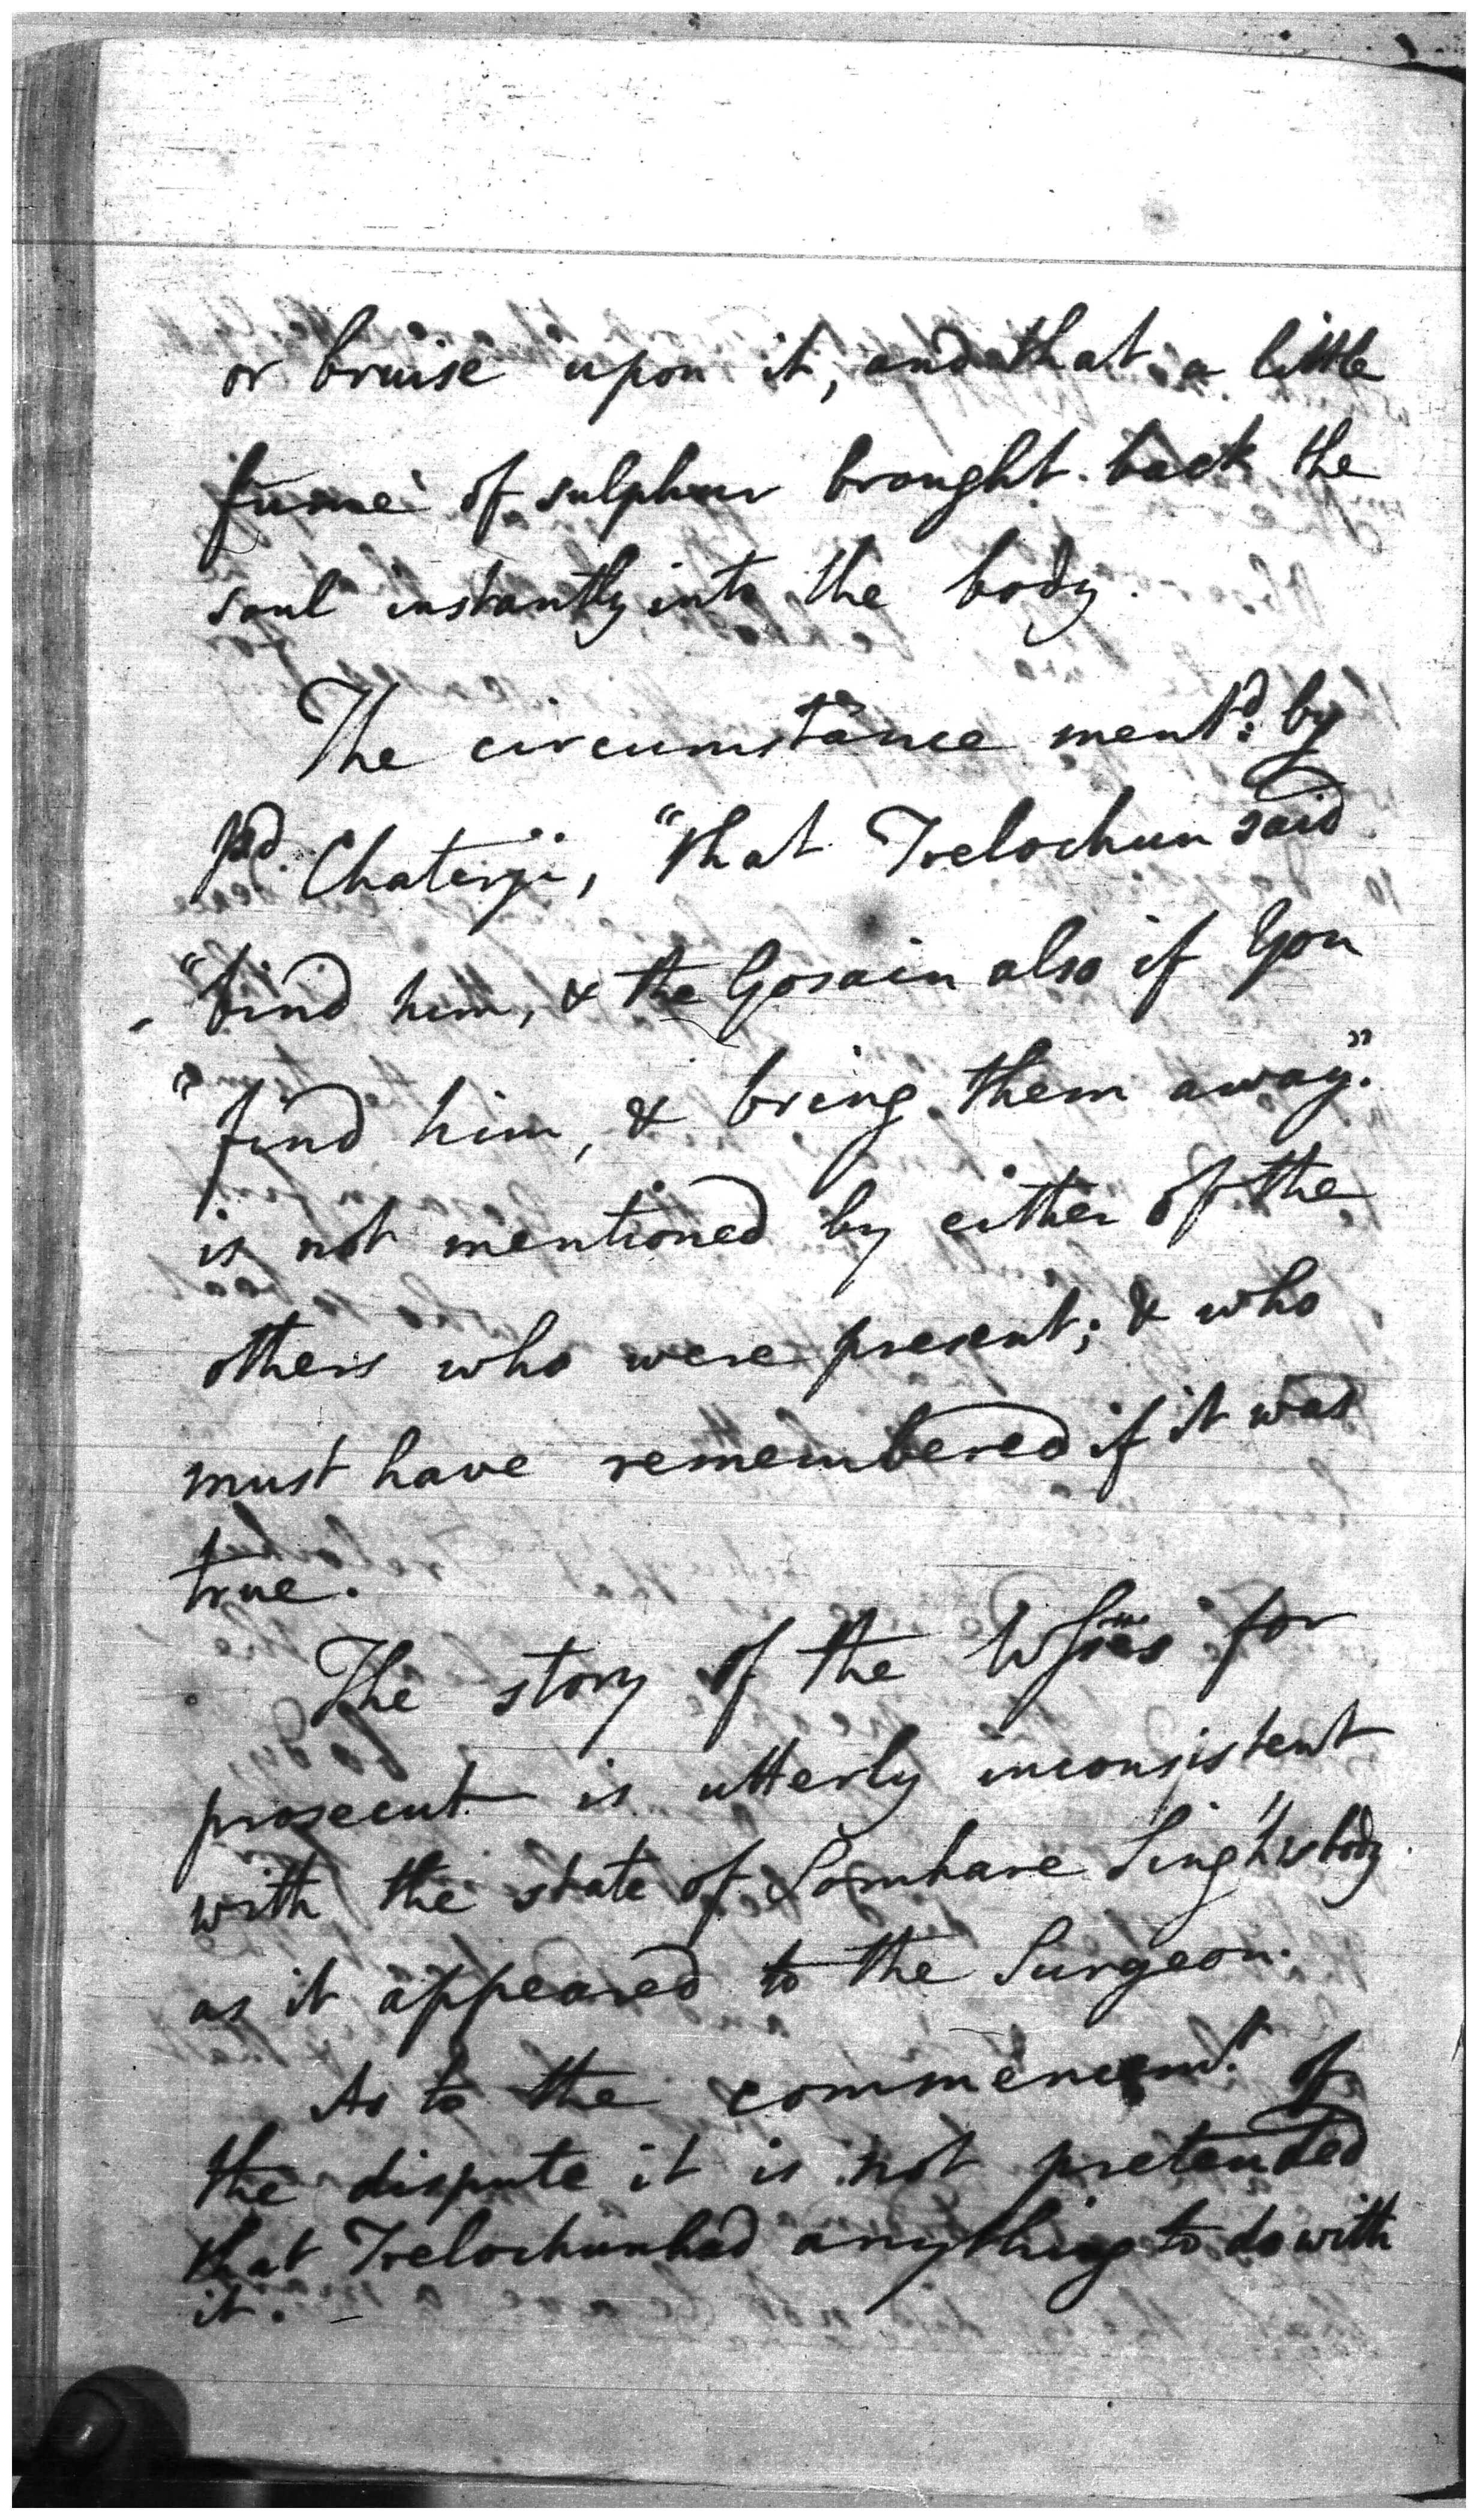 or bruise upon it, and that a little
fume of sulphur brought back the
soul instantly into the body.
The circumstance ment.d by
Chaterji, "that Trelochun said
"bind him, & the Gosain also if You
"find him, & bring them away."
is not mentioned by either of the
others who were present; & who
must have remembered if it was
true.
The story of the for
prosecut. is utterly inconsistent
with the state of Singh's body
as it appeared to the Surgeon.
As to the commencemt. of
the dispute it is not pretended
that Trelochun had anything to do with
it. –